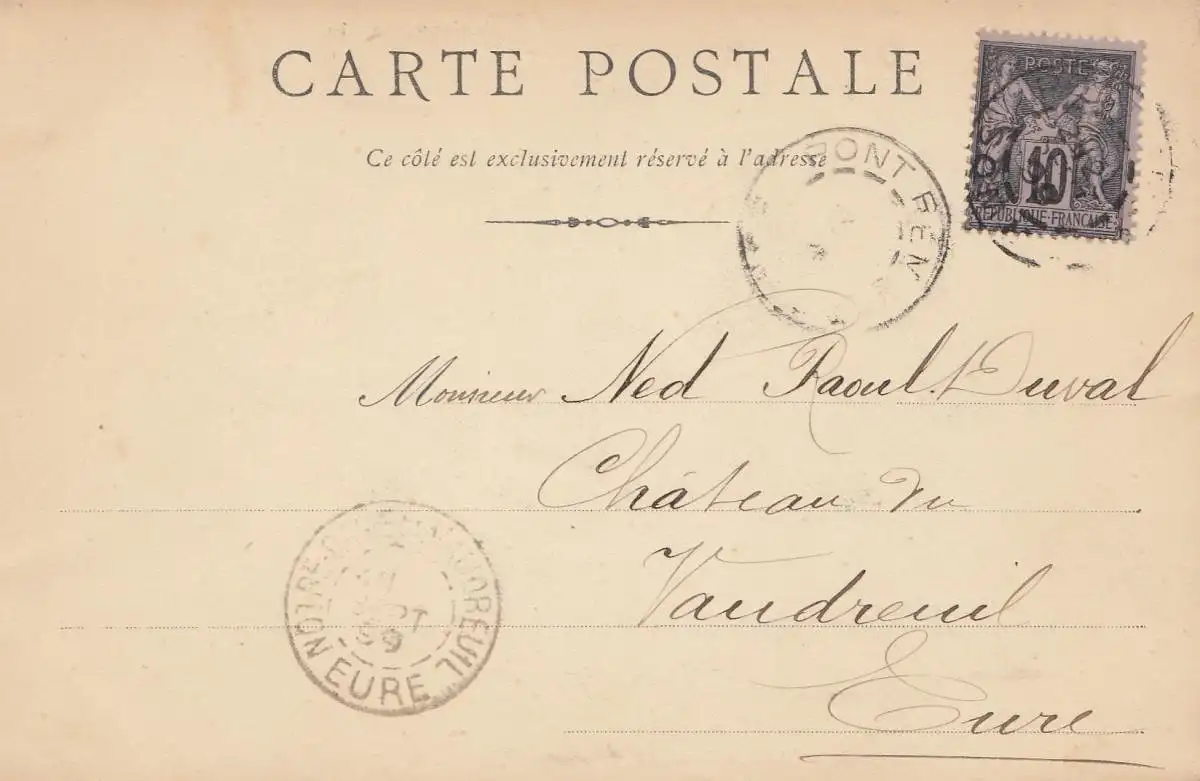 CARTE POSTALE
POSTES
10
RÉPUBLIQUE FRANÇAISE
Ce côté est exclusivement réservé à l'adresse
PONT
Monsieur Ned Raoul. Duval
Château du
Vaudreuil
Eure
NOTRE-DAME-DU-VAUDREUIL
SEPT
99
EURE